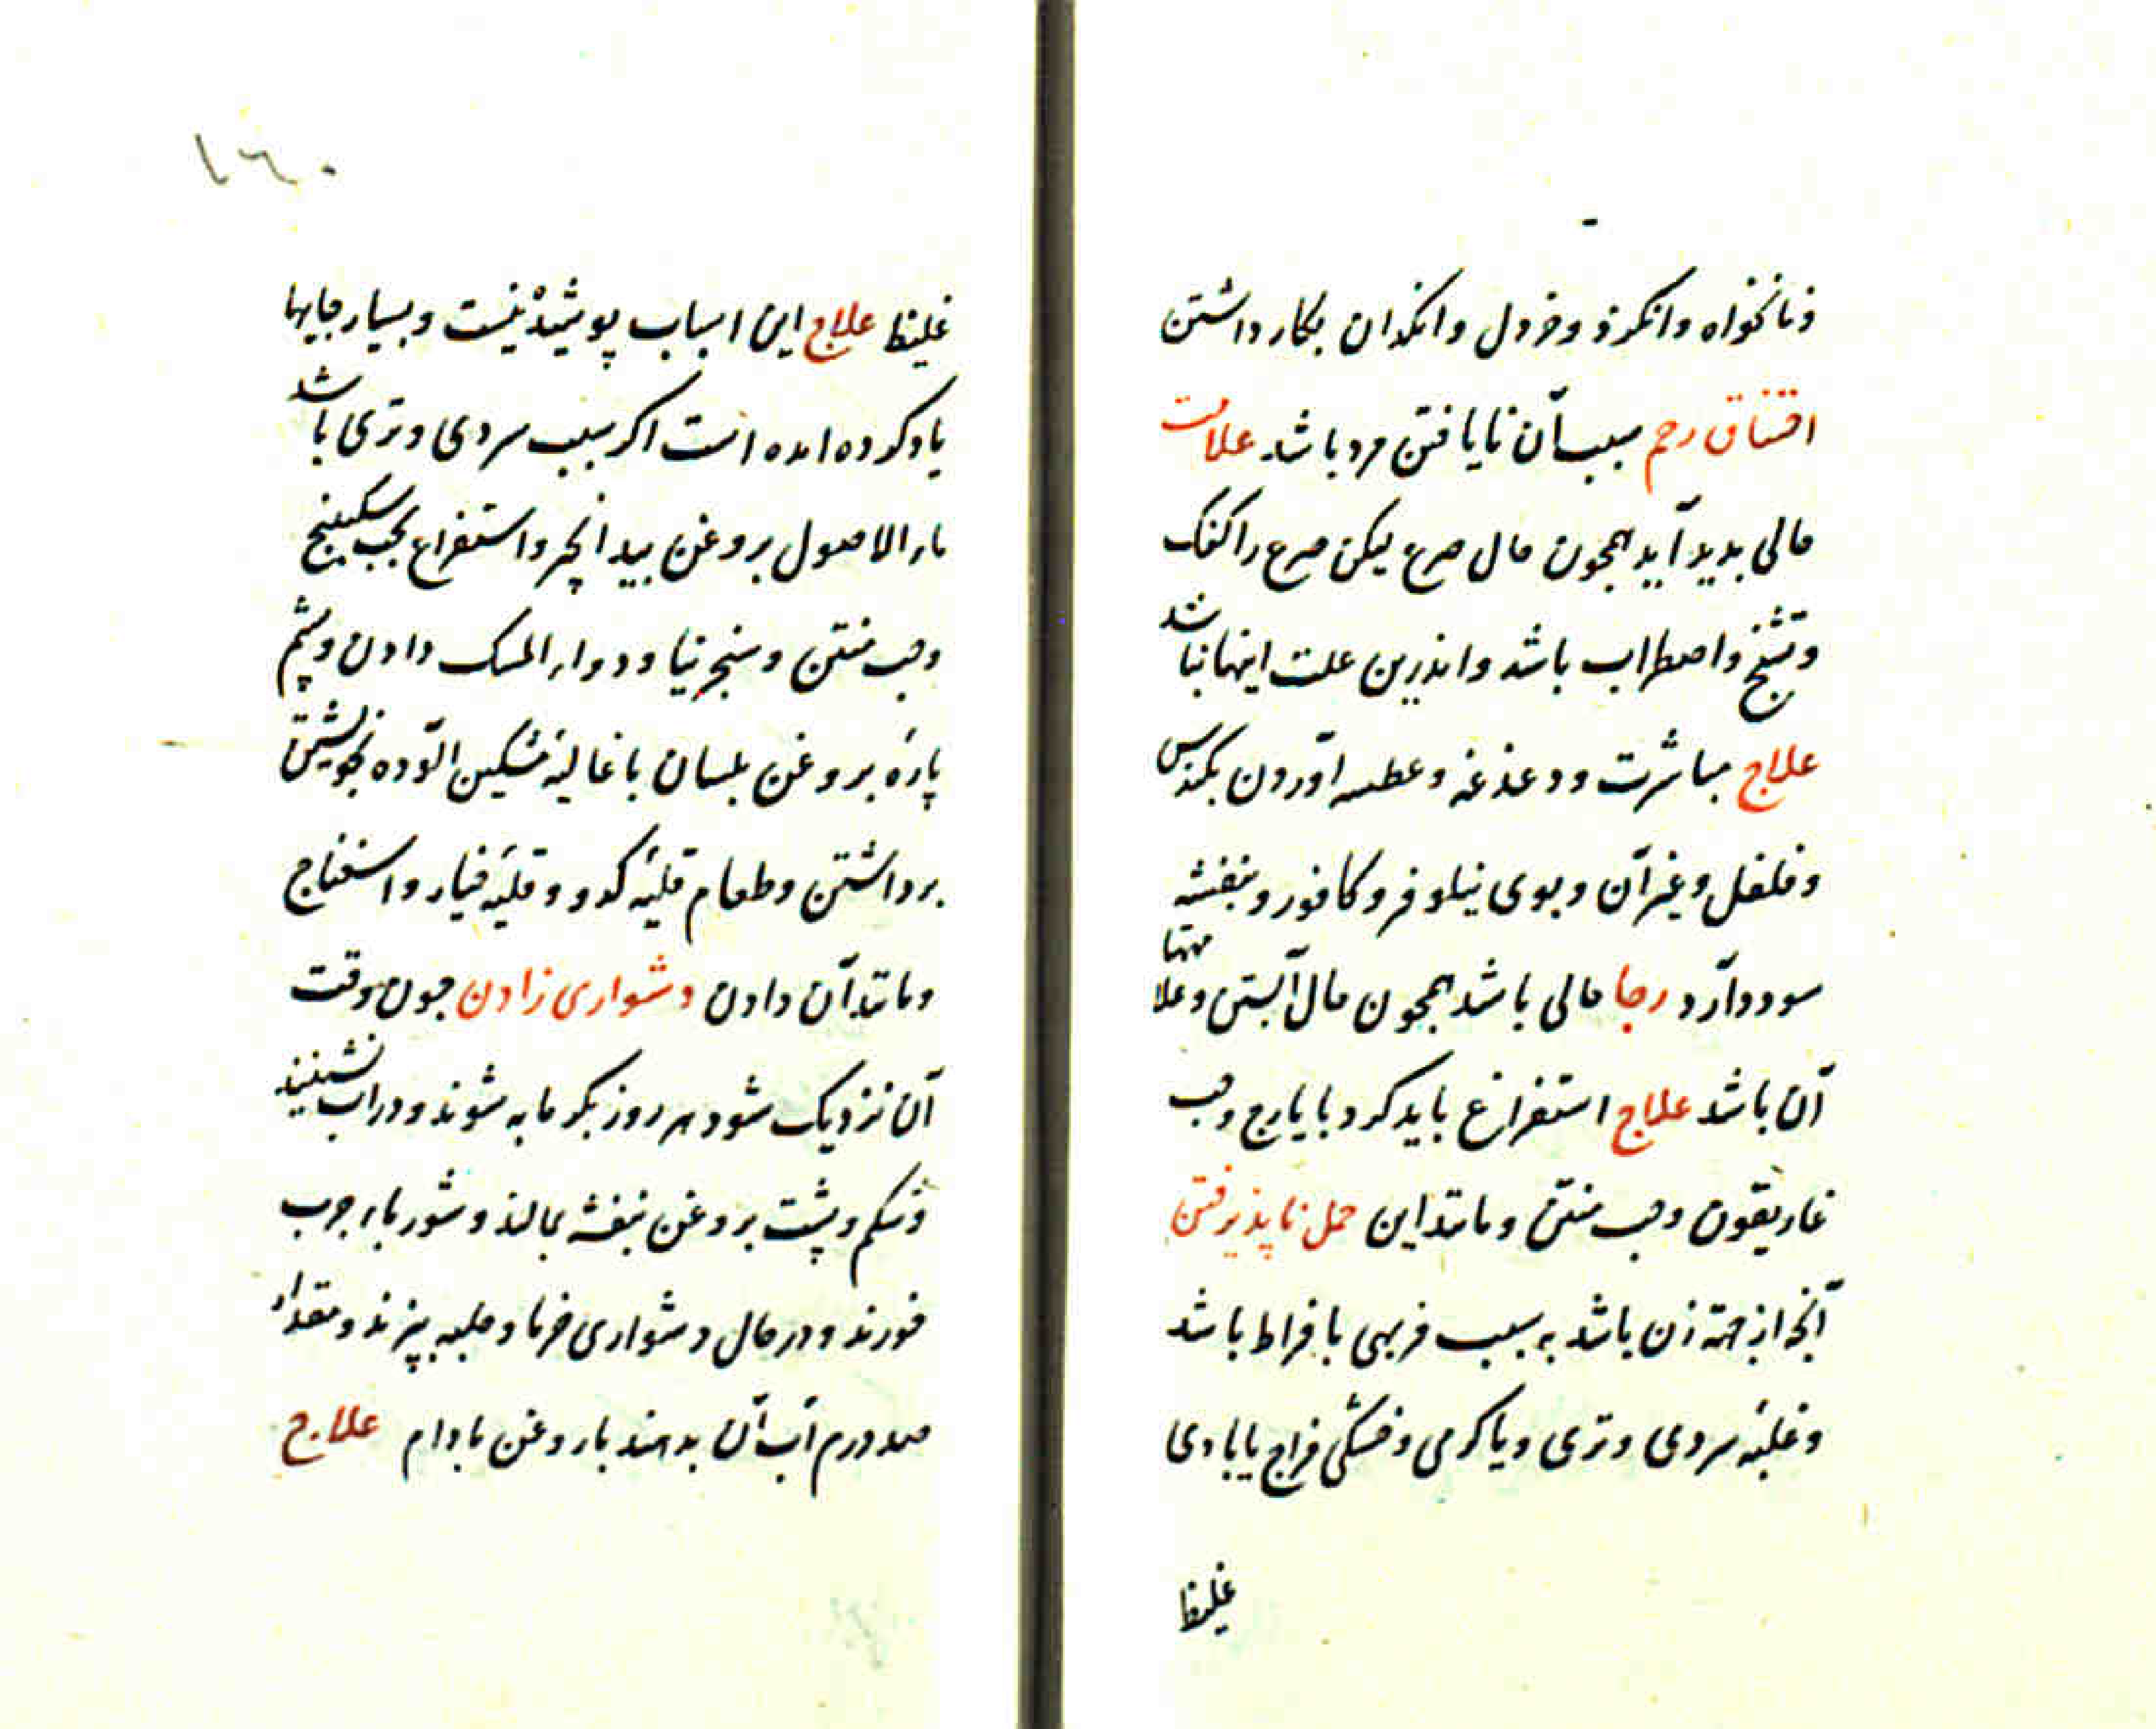 ونانخواه وانکزد وخردل وانکدان بکار داشتن
اختناق رحم سبب آن نایافتن مرد باشد علامت
حالی بدید آید همچون حال صرع لیکن صرع را کفک
وتشنج واضطراب باشد واندرین علت اینها نباشد
علاج مباشرت ودغدغه وعطسه آوردن بکندس
وفلفل وغیر آن وبوی نیلوفر وکافور وبنفشه
سود دارد رجا حالی باشد همچون حال آبستنی وعلامتها
آن باشد علاج استفراغ باید کرد بایارج وحب
غاریقون وحب منتن ومانند این حمل ناپذیرفتن
آنچه از جهة زن باشد به سبب فربهی بافراط باشد
وغلبهٔ سردی وتری ویا کرمی وخشکی مزاج یا بادی
غلیظ
١٦٠
غلیظ علاج این اسباب پوشیده نیست وبسیار جایها
یاد کرده امده است اکر سبب سردی وتری باشد
ماء الاصول بروغن بید انجیر واستفراغ بحب سکبینج
وحب منتن وسنجرنیا ودواء المسک دادن وپشم
پارهٔ بروغن بلسان باغالیهٔ مشکین آلوده بخویشتن
برداشتن وطعام قلیهٔ کدو وقلیهٔ خیار واسفناج
ومانند آن دادن دشواری زادن جون وقت
آن نزدیک شود هر روز بکرمابه شوند ودر آب نشینند
وشکم وپشت بروغن بنفشه بمالند وشورباء جرب
خورند ودر حال دشواری خرما وحلبه بپزند ومقدار
صد درم آب آن بدهند باروغن بادام علاج